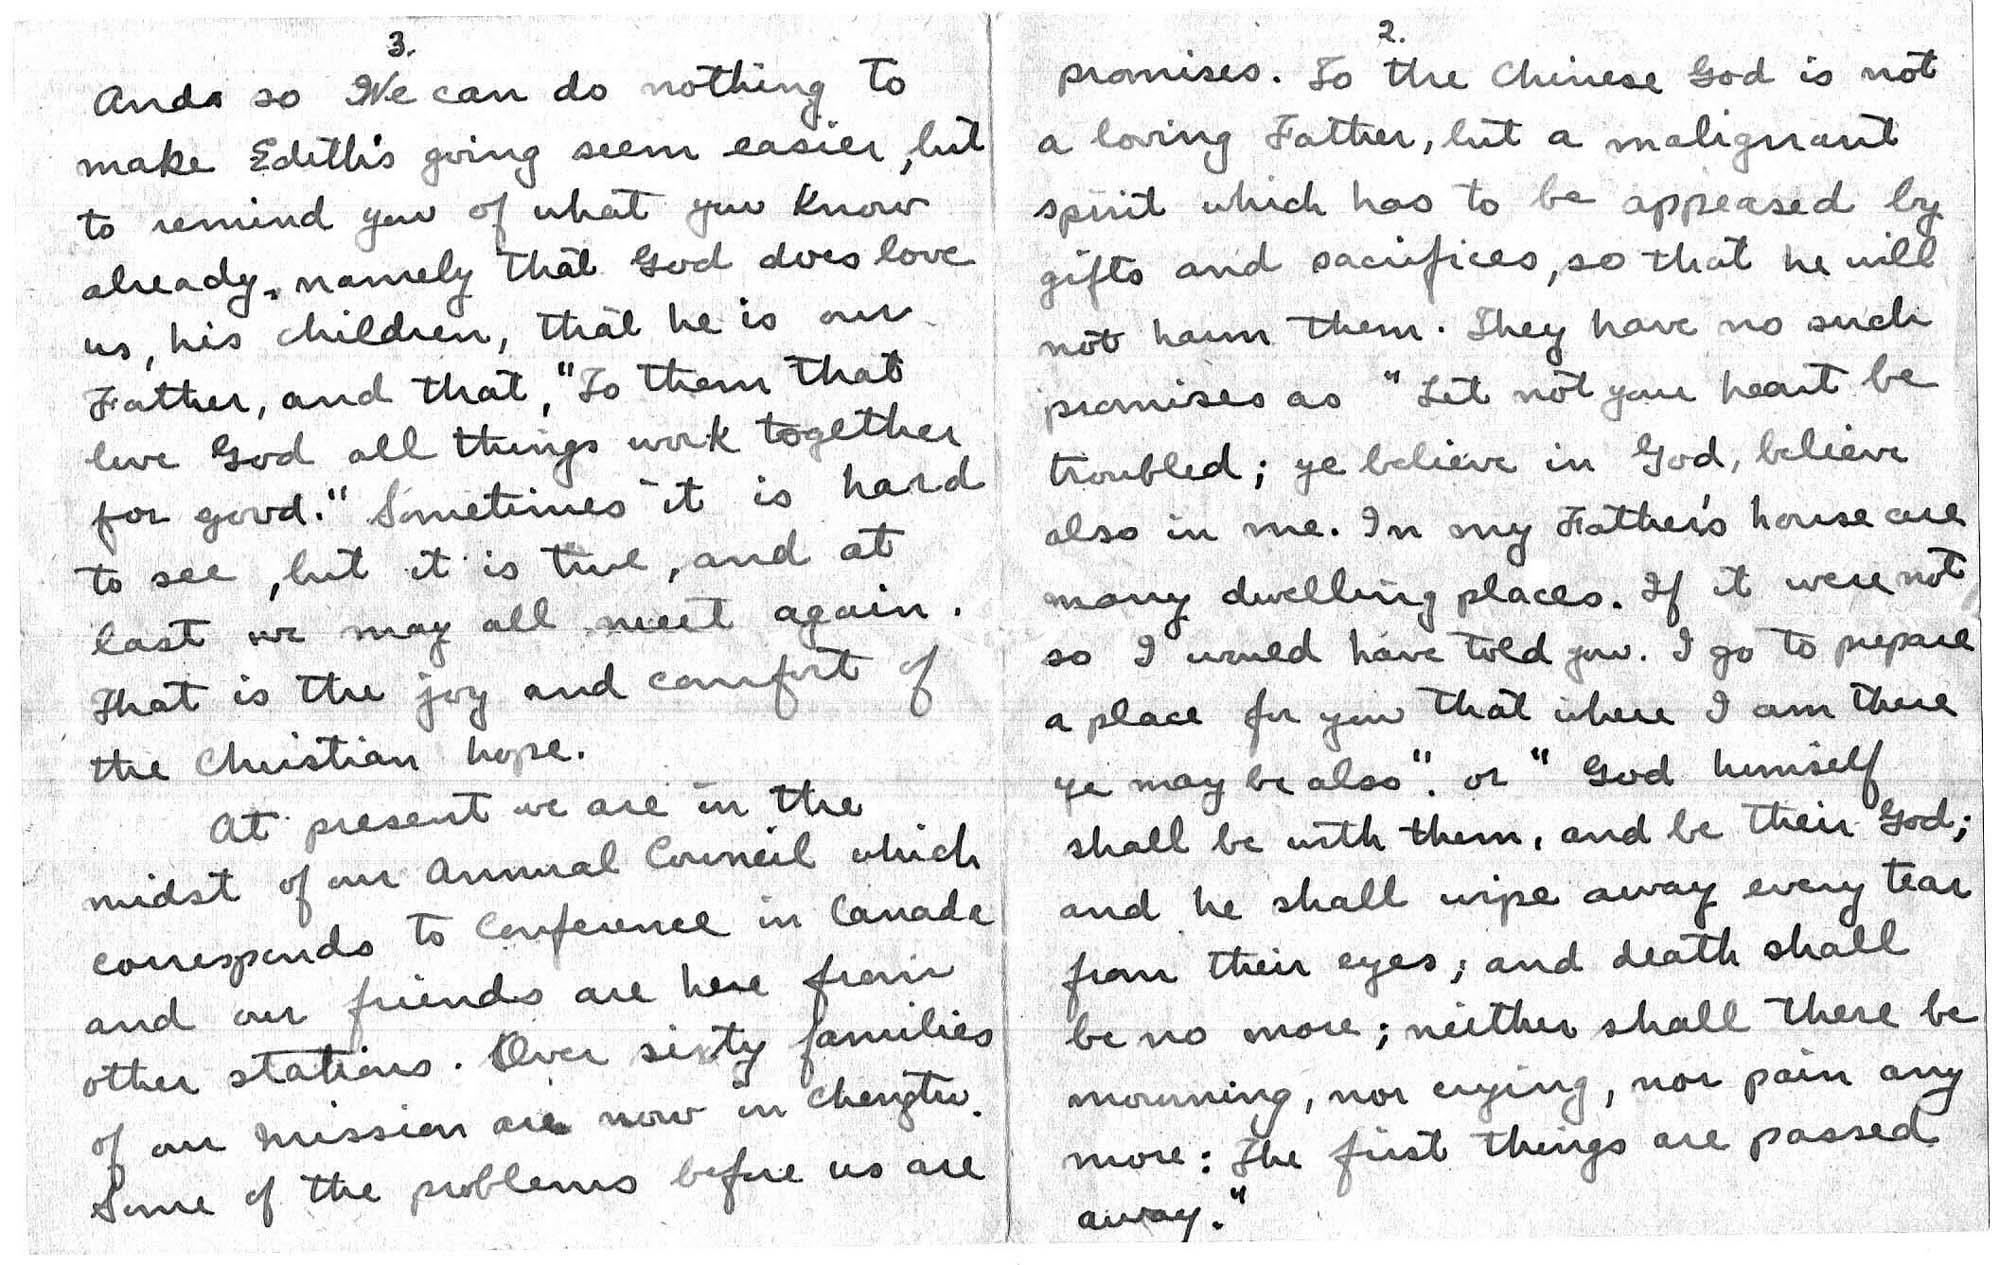 2.
promises. To the Chinese God is not
a loving Father, but a malignant
spirit which has to be appeased by
gifts and sacrifices, so that he will
not harm them. They have no such
promises as "Let not your heart be
troubled; ye believe in God, believe
also in me. In my Father's house are
many dwelling places. If it were not
so I would have told you. I go to prepare
a place for you that where I am there
ye may be also". or "God himself
shall be with them, and be their God;
and he shall wipe away every tear
from their eyes; and death shall
be no more; neither shall there be
mourning, nor crying, nor pain any
more: The first things are passed
away."
3.
And so We can do nothing to
make Edith's going seem easier, but
to remind you of what you know
already, namely that God does love
us, his children, that he is our
Father, and that, "To them that
love God all things work together
for good." Sometimes it is hard
to see, but it is true, and at
last we may all meet again.
That is the joy and comfort of
the Christian hope.
At present we are in the
midst of our Annual Council which
corresponds to Conference in Canada
and our friends are here from
other stations. Over sixty families
of our mission are now in Chengtu.
Some of the problems before us are